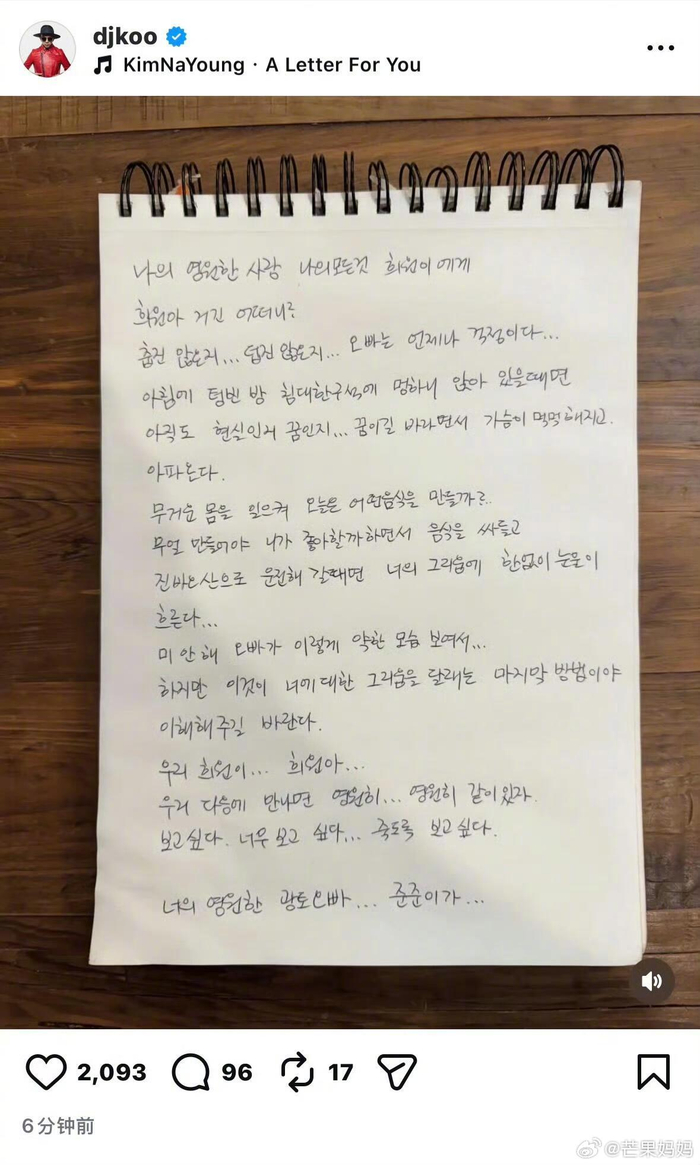 djkoo
KimNaYoung · A Letter For You
나의 영원한 사랑 나의모든것 희원이에게
희원아 거긴 어떠니?
춥진 않은지... 덥진 않은지... 오빠는 언제나 걱정이다...
아침에 텅빈 방 침대한구석에 멍하니 앉아 있을때면
아직도 현실인지 꿈인지... 꿈이길 바라면서 가슴이 먹먹해지고.
아파온다.
무거운 몸을 일으켜 오늘은 어떤음식을 만들까?..
무얼 만들어야 니가 좋아할까하면서 음식을 싸들고
진바오산으로 운전해 갈때면 너의 그리움에 한없이 눈물이
흐른다...
미안해 오빠가 이렇게 약한 모습 보여서...
하지만 이것이 너에대한 그리움을 달래는 마지막 방법이야
이해해주길 바란다.
우리 희원이... 희원아...
우리 다음에 만나면 영원히... 영원히 같이있자.
보고싶다. 너무 보고 싶다... 죽도록 보고싶다.
너의 영원한 광토오빠... 준준이가...
2,093 96 17
6分钟前
@芒果妈妈